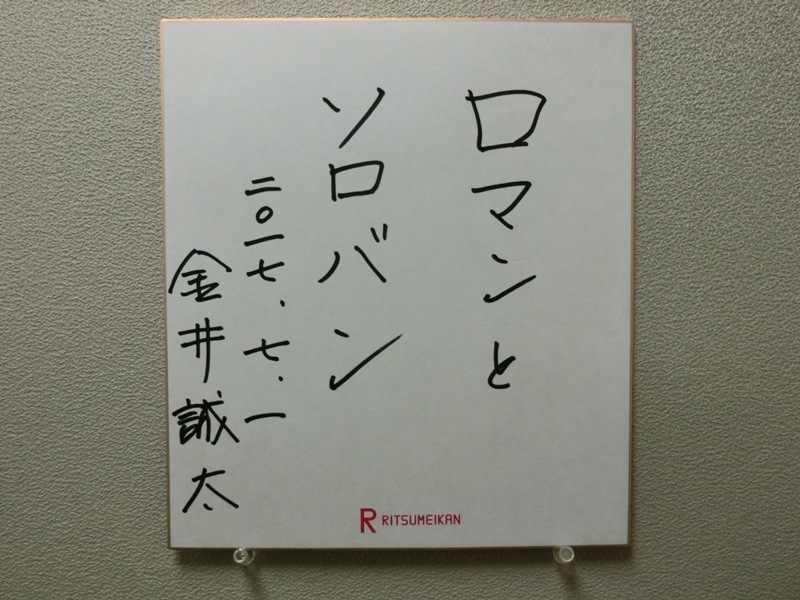 ロマンと
ソロバン
二〇一七.七.一
金井誠太
R RITSUMEIKAN